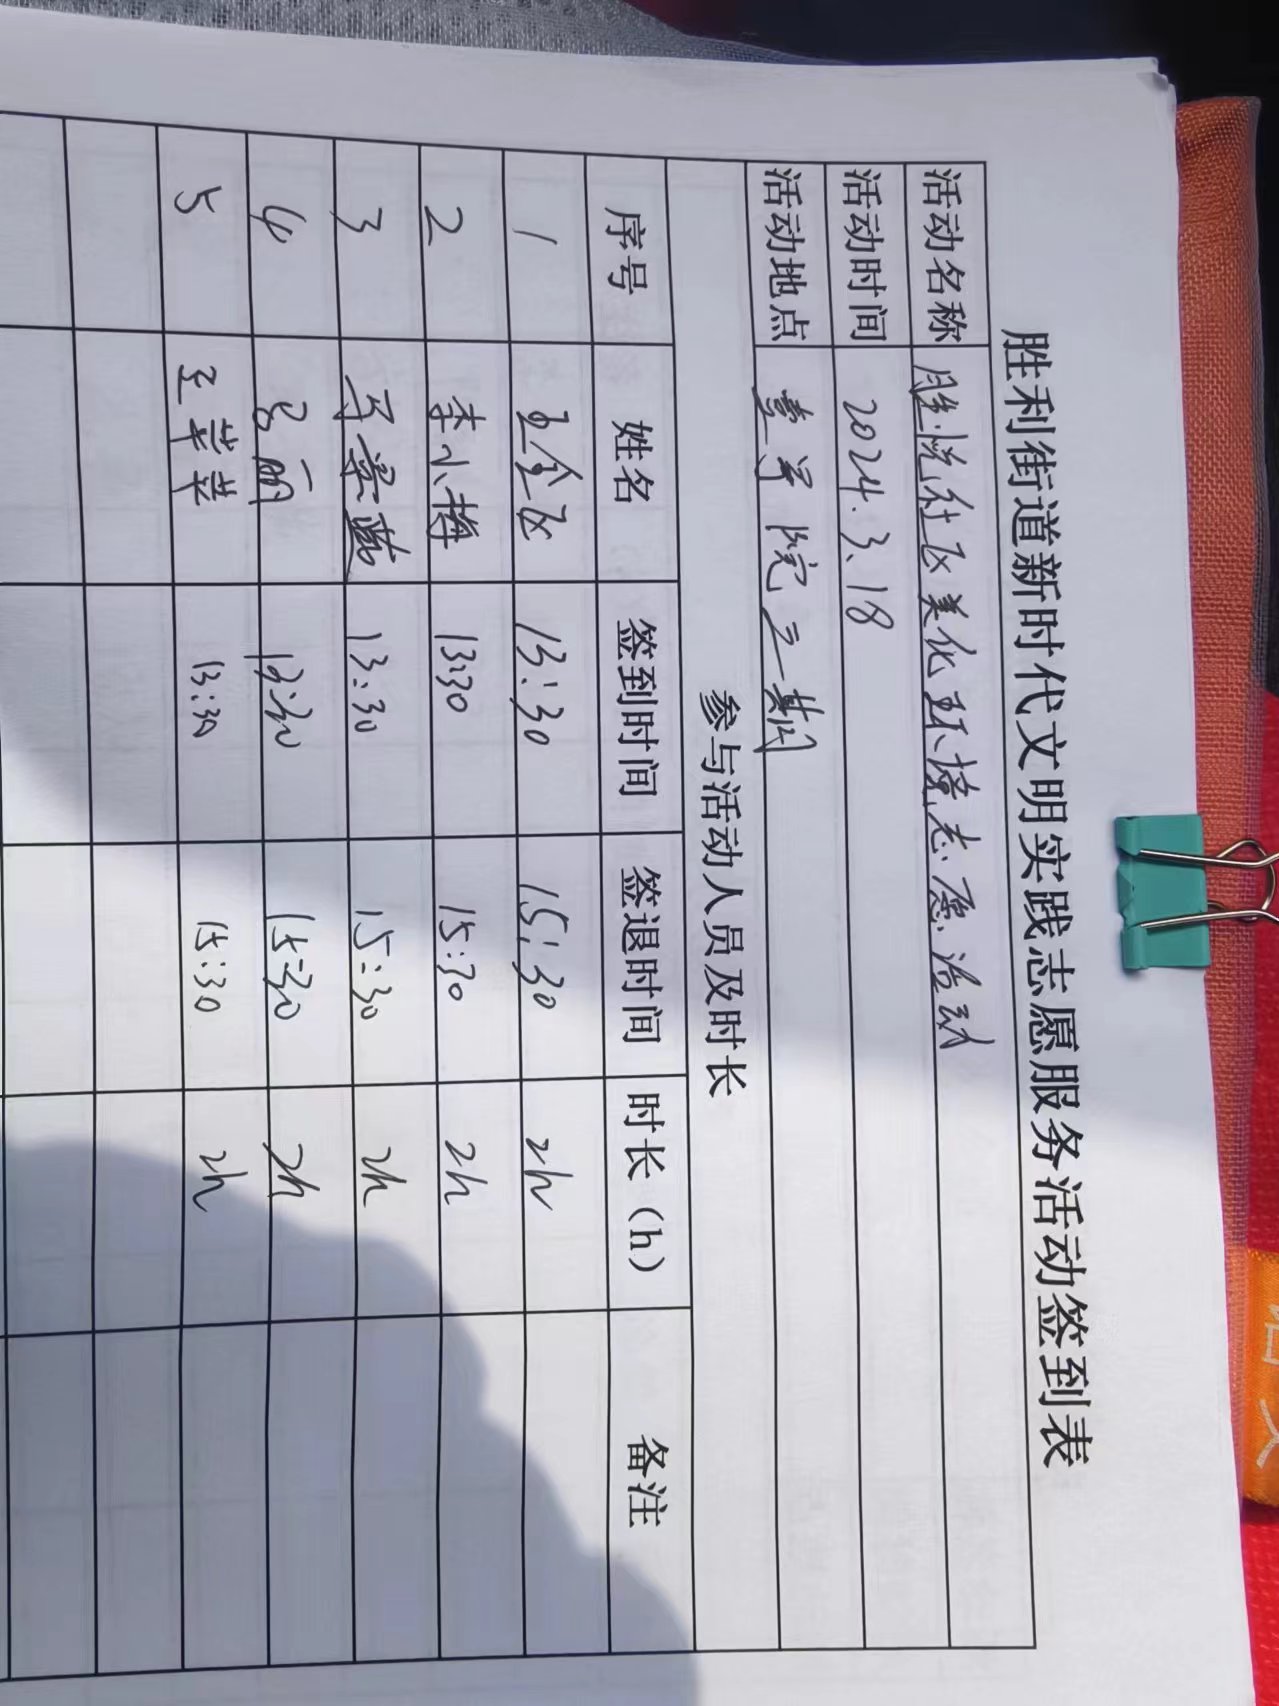 胜利街道新时代文明实践志愿服务活动签到表
活动名称 胜悦社区美化环境志愿活动
活动时间 2024.3.18
活动地点 壹学院三期
参与活动人员及时长
序号 姓名 签到时间 签退时间 时长（h） 备注
1 王金 13:30 15:30 2h
2 李小梅 13:30 15:30 2h
3 13:30 15:30 2h
4 马丽 13:30 15:30 2h
5 王苹苹 13:30 15:30 2h